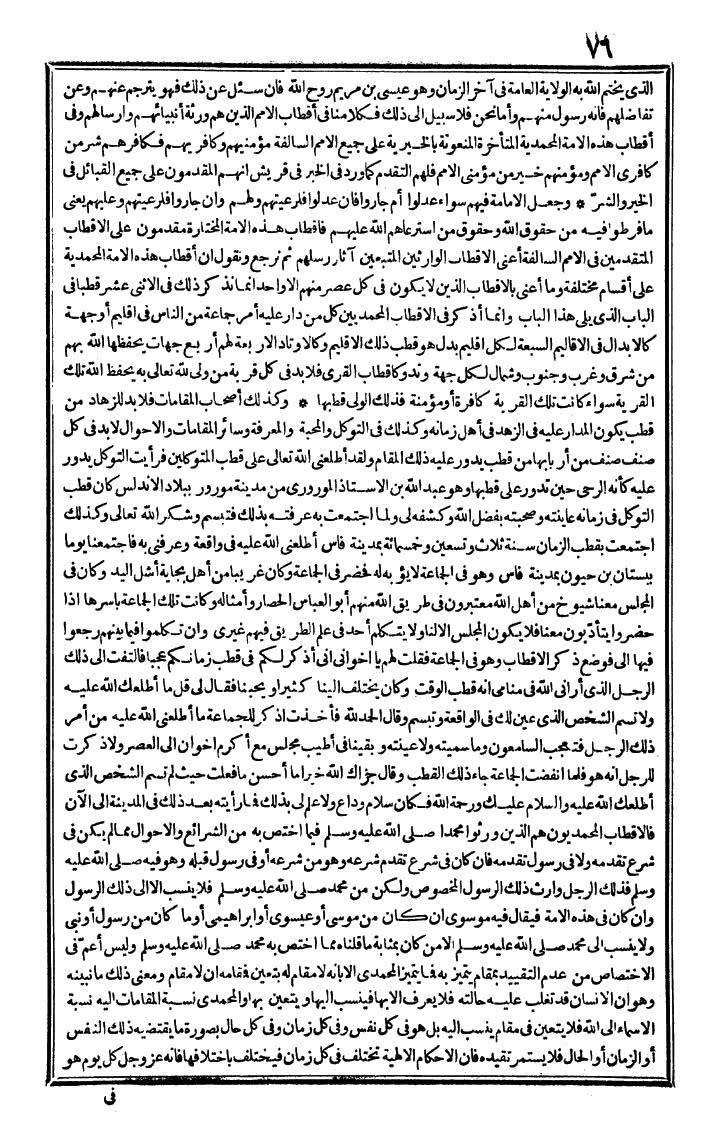 ٧٦
الذي يختم الله به الولاية العامة في آخر الزمان وهو عيسى بن مريم روح الله فان سئل عن ذلك فهو يترجم عنهم وعن
تفاضلهم فانه رسول منهم وأما نحن فلا سبيل الى ذلك فكلامنا في أقطاب الامم الذين هم ورثة أنبيائهم وارسالهم وفي
أقطاب هذه الامة المحمدية المتأخرة المنعوتة بالخيرية على جميع الامم السالفة مؤمنيهم وكافريهم فكافرهم شر من
كافرى الامم ومؤمنهم خير من مؤمنى الامم فلهم التقدم كما ورد في الخبر في قريش انهم المقدمون على جميع القبائل في
الخير والشرّ * وجعل الامامة فيهم سواء عدلوا أم جاروا فان عدلوا فلرعيتهم ولهم وان جاروا فلرعيتهم وعليهم يعنى
ما فرطوا فيه من حقوق الله وحقوق من استرعاهم الله عليهم فاقطاب هذه الامة المختارة مقدمون على الاقطاب
المتقدمين في الامم السالفة أعنى الاقطاب الوارثين المتبعين آثار رسلهم ثم نرجع ونقول ان أقطاب هذه الامة المحمدية
على أقسام مختلفة وما أعنى بالاقطاب الذين لا يكون في كل عصر منهم الا واحد انما نذكر ذلك في الاثنى عشر قطبا في
الباب الذي يلى هذا الباب وانما أذكر في الاقطاب المحمديين كل من دار عليه أمر جماعة من الناس في اقليم أو جهة
كالابدال في الاقاليم السبعة لكل اقليم بدل هو قطب ذلك الاقليم وكالاوتاد الاربعة لهم أربع جهات يحفظها الله بهم
من شرق وغرب وجنوب وشمال لكل جهة وتد وكاقطاب القرى فلا بد في كل قرية من ولى لله تعالى به يحفظ الله تلك
القرية سواء كانت تلك القرية كافرة أو مؤمنة فذلك الولى قطبها * وكذلك أصحاب المقامات فلا بد للزهاد من
قطب يكون المدار عليه في الزهد في أهل زمانه وكذلك في التوكل والمحبة والمعرفة وسائر المقامات والاحوال لا بد في كل
صنف صنف من أربابها من قطب يدور عليه ذلك المقام ولقد أطلعنى الله تعالى على قطب المتوكلين فرأيت التوكل يدور
عليه كأنه الرحى حين تدور على قطبها وهو عبد الله بن الاستاذ المورورى من مدينة مورور ببلاد الاندلس كان قطب
التوكل في زمانه عاينته وصحبته بفضل الله وكشفه لى ولما اجتمعت به عرفته بذلك فتبسم وشكر الله تعالى وكذلك
اجتمعت بقطب الزمان سنة ثلاث وتسعين وخمسمائة بمدينة فاس أطلعنى الله عليه في واقعة وعرفنى به فاجتمعنا يوما
ببستان بن حيون بمدينة فاس وهو في الجماعة لا يؤبه له فحضر في الجماعة وكان غريبا من أهل بجاية أشل اليد وكان في
المجلس معنا شيوخ من أهل الله معتبرون في طريق الله منهم أبو العباس الحصار وأمثاله وكانت تلك الجماعة باسرها اذا
حضروا يتأدّبون معنا فلا يكون المجلس الا لنا ولا يتكلم أحد في علم الطريق فيهم غيرى وان تكلموا فيما بينهم رجعوا
فيها الى فوضع ذكر الاقطاب وهو في الجماعة فقلت لهم يا اخوانى انى أذكر لكم في قطب زمانكم عجبا فالتفت الى ذلك
الرجل الذي أرانى الله في منامى انه قطب الوقت وكان يختلف الينا كثيرا ويحبنا فقال لى قل ما أطلعك الله عليه
ولا تسم الشخص الذي عين لك في الواقعة وتبسم وقال الحمد لله فأخذت اذكر للجماعة ما أطلعنى الله عليه من أمر
ذلك الرجل فتعجب السامعون وما سميته ولا عينته وبقينا في أطيب مجلس مع أكرم اخوان الى العصر ولا ذكرت
للرجل انه هو فلما انفضت الجماعة جاء ذلك القطب وقال جزاك الله خيرا ما أحسن ما فعلت حيث لم تسم الشخص الذي
أطلعك الله عليه والسلام عليك ورحمة الله فكان سلام وداع ولا علم لى بذلك فما رأيته بعد ذلك في المدينة الى الآن
فالاقطاب المحمديون هم الذين ورثوا محمدا صلى الله عليه وسلم فيما اختص به من الشرائع والاحوال مما لم يكن في
شرع تقدمه ولا في رسول تقدمه فان كان في شرع تقدم شرعه وهو من شرعه أو في رسول قبله وهو فيه صلى الله عليه
وسلم فذلك الرجل وارث ذلك الرسول المخصوص ولكن من محمد صلى الله عليه وسلم فلا ينسب الا الى ذلك الرسول
وان كان في هذه الامة فيقال فيه موسوى ان كان من موسى أو عيسوى أو ابراهيمى أو ما كان من رسول أو نبى
ولا ينسب الى محمد صلى الله عليه وسلم الا من كان بمثابة ما قلناه مما اختص به محمد صلى الله عليه وسلم وليس أعمّ في
الاختصاص من عدم التقييد بمقام يتميز به فما يتميز المحمدى الا بانه لا مقام له بتعين فمقامه ان لا مقام ومعنى ذلك ما نبينه
وهو ان الانسان قد تغلب عليه حالته فلا يعرف الا بها فينسب اليها ويتعين بها والمحمدى نسبة المقامات اليه نسبة
الاسماء الى الله فلا يتعين في مقام ينسب اليه بل هو في كل نفس وفي كل زمان وفي كل حال بصورة ما يقتضيه ذلك النفس
أو الزمان أو الحال فلا يستمر تقيده فان الاحكام الالهية تختلف في كل زمان فيختلف باختلافها فانه عز وجل كل يوم هو
في